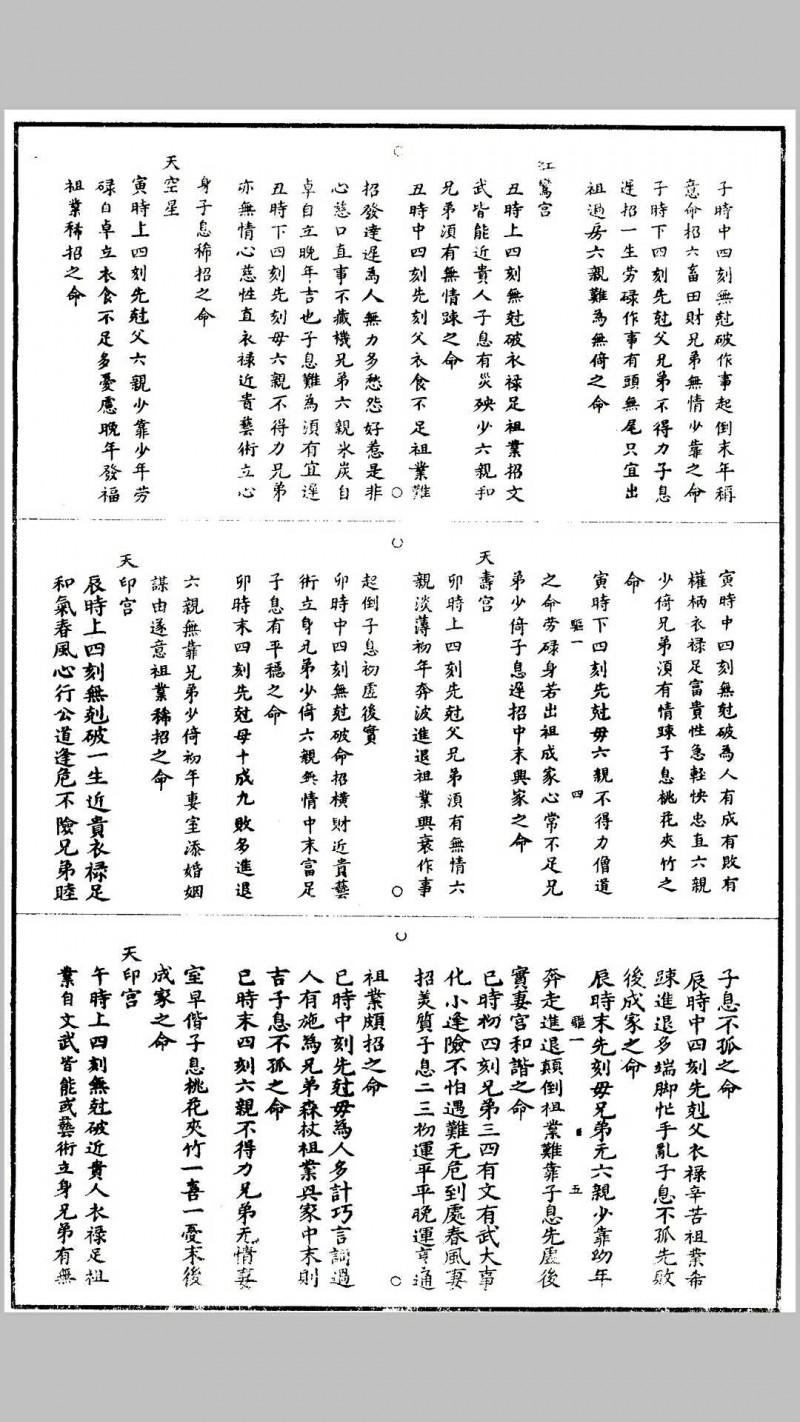 子時中四刻無尅破作事起倒末年稱
意命招六畜田財兄弟無情少靠之命
子時下四刻先尅父兄弟不得力子息
遲招一生勞碌作事有頭無尾只宜出
祖過房六親難為無倚之命
紅鸞宮
丑時上四刻無尅破衣祿足祖業招文
武皆能近貴人子息有災殃少六親和
兄弟須有無情踈之命
丑時中四刻先刻父衣食不足祖業難
招發達遲為人無力多愁怨好惹是非
心慈口直事不藏機兄弟六親氷炭自
卓自立晚年吉也子息難為須有宜遲
丑時下四刻先刻母六親不得力兄弟
亦無情心慈性直衣祿近貴藝術立心
身子息稀招之命
天空星
寅時上四刻先尅父六親少靠少年勞
碌自卓立衣食不足多憂慮晚年發福
祖業稀招之命
寅時中四刻無尅破為人有成有敗有
權柄衣祿足富貴性急軽快忠直六親
少倚兄弟須有情踈子息桃花夾竹之
命
寅時下四刻先尅母六親不得力僧道
驅一 四
之命勞碌身若出祖成家心常不足兄
弟少倚子息遲招中末興家之命
天壽宮
卯時上四刻先尅父兄弟須有無情六
親淡薄初年奔波進退祖業興衰作事
起倒子息初虛後實
卯時中四刻無尅破命招橫財近貴藝
術立身兄弟少倚六親無情中末富足
子息有平穩之命
卯時末四刻先尅母十成九敗多進退
六親無靠兄弟少倚初年妻室添婚姻
謀由遂意祖業稀招之命
天印宮
辰時上四刻無剋破一生近貴衣祿足
和氣春風心行公道逢危不險兄弟睦
子息不孤之命
辰時中四刻先剋父衣祿辛苦祖業希
踈進退多端脚忙手亂子息不孤先敗
後成家之命
辰時末先刻母兄弟无六親少靠幼年
驅一 五
奔走進退顛倒祖業難靠子息先虛後
實妻宮和諧之命
巳時初四刻兄弟三四有文有武大事
化小逢險不怕遇難无危到處春風妻
招美質子息二三初運平平晚運亨通
祖業頗招之命
巳時中刻先尅母為人多計巧言詞過
人有施為兄弟森杖祖業興家中末則
吉子息不孤之命
巳時末四刻六親不得力兄弟无情妻
室早偕子息桃花夾竹一喜一憂末後
成家之命
天印宮
午時上四刻無尅破近貴人衣祿足祖
業自文武皆能或藝術立身兄弟有無